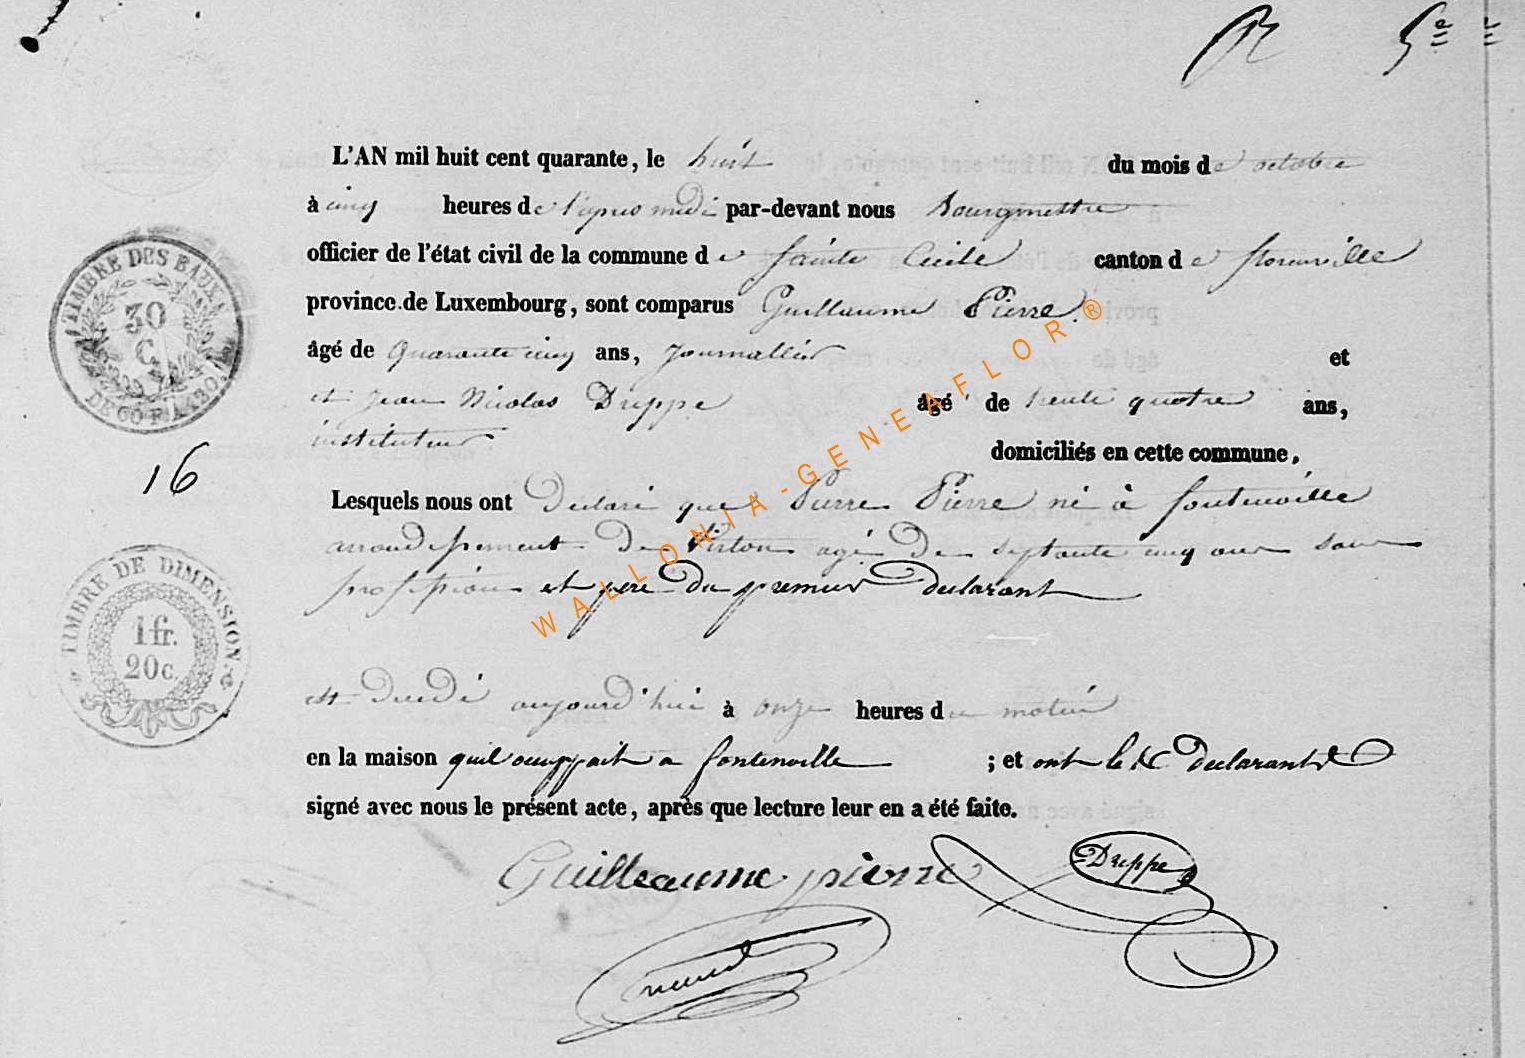 R 5e
L'AN mil huit cent quarante, le huit du mois de octobre
à cinq heures de l'apres midi par-devant nous Bourgmestre
officier de l'état civil de la commune de Sainte Cecile canton de florenville
province de Luxembourg, sont comparus Guillaume Pierre
âgé de Quarante cinq ans, Journallier et
et Jean Nicolas Dreppe âgé de trente quatre ans,
instituteur domiciliés en cette commune.
Lesquels nous ont Declaré que Pierre Pierre né à fontenoille
arrondissement De Virton agé De septante cinq ans sans
profession et pere Du premier declarant
est Decedé aujourd'hui à onze heures du matin
en la maison quil occuppait a fontenoille ; et ont les Declarants
signé avec nous le présent acte, après que lecture leur en a été faite.
Guilleaume pierre Dreppe
TIMBRE DES
30
C.
16
TIMBRE DE DIMENSION.
1 fr.
20 c.
WALLONIA-GENEAFLOR®